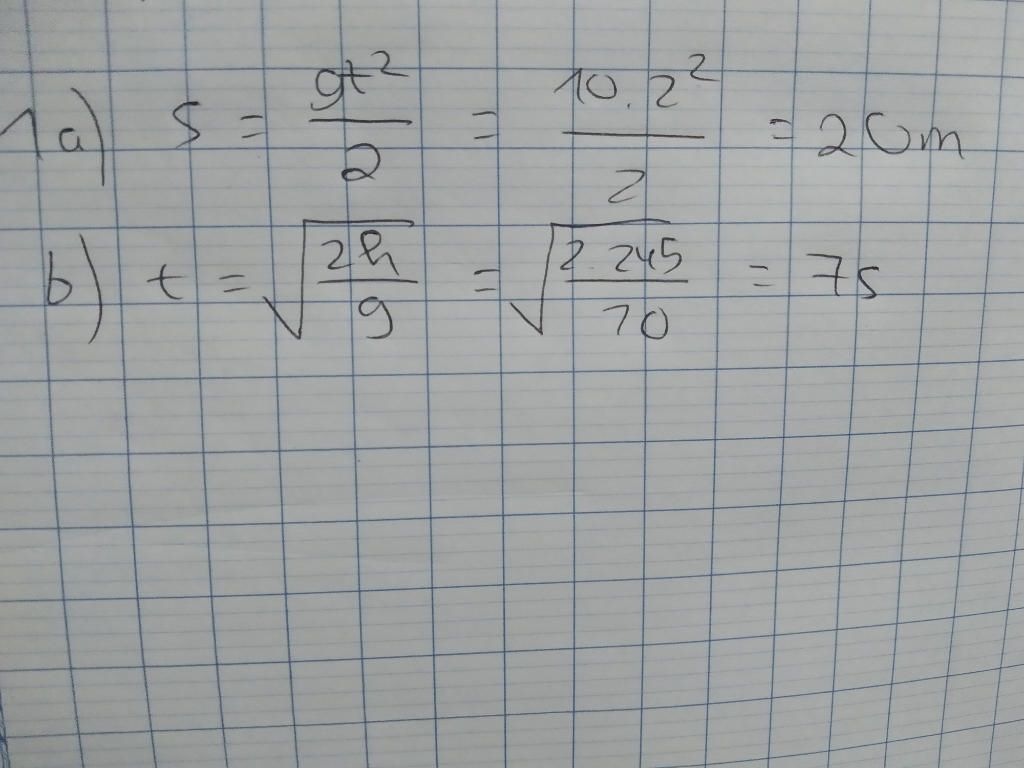 1a) s = gt²/2 = 10.2²/2 = 20m
b) t = √(2h/g) = √(2.245/10) = 7s